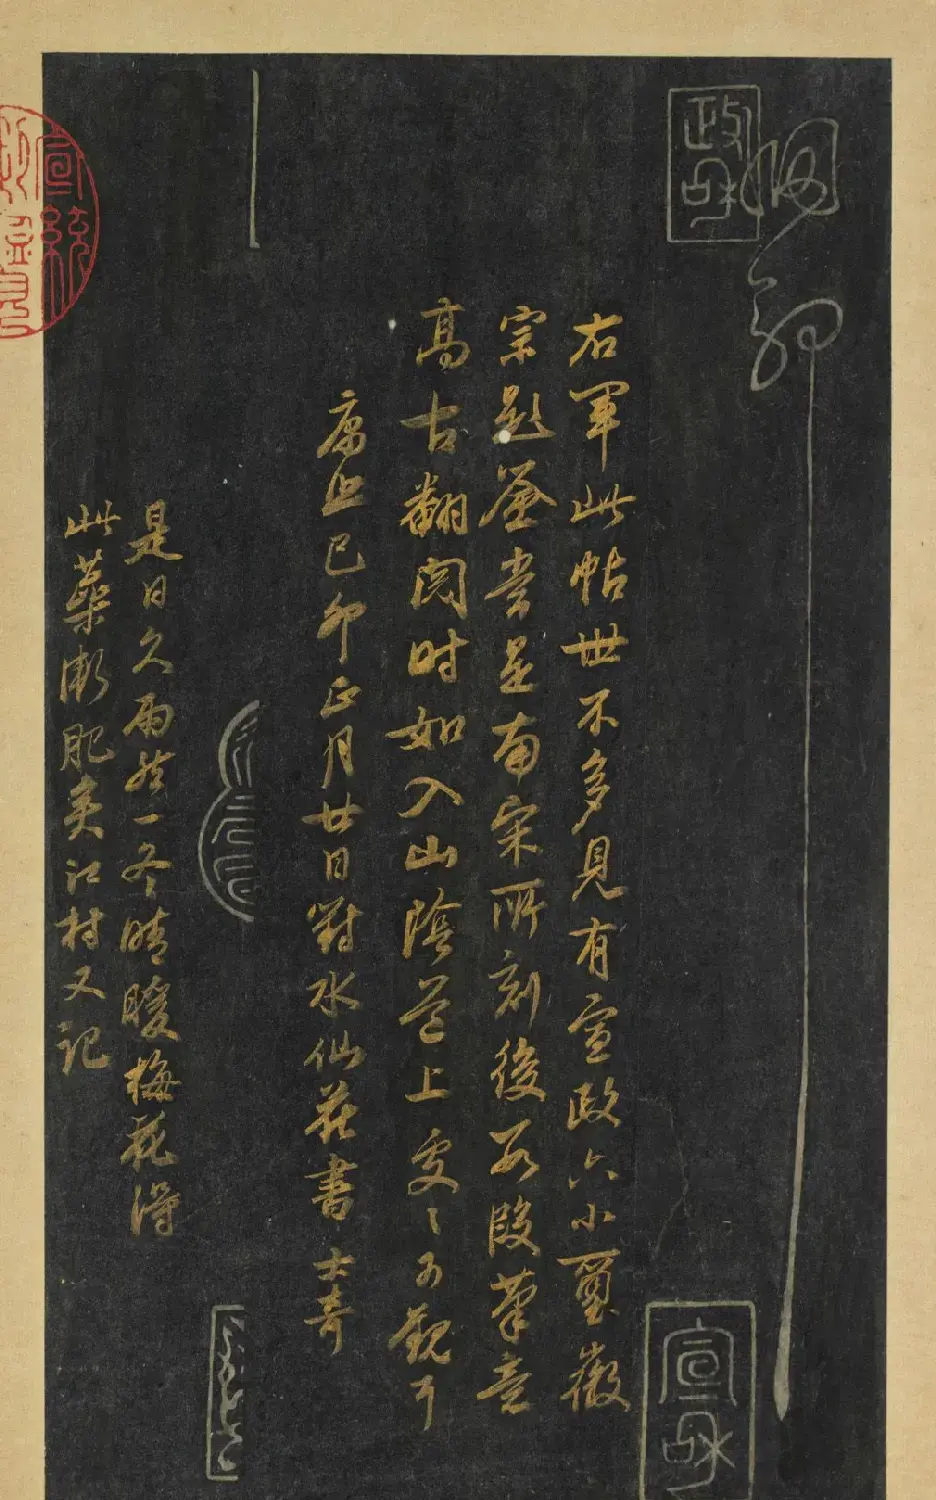 政和
右軍此帖世不多見有宣政六小璽徽
宗題簽當是南宋所刻後段筆意
高古翻閱時如入山陰道上處〻可觀耳
康熙己卯正月廿日對水仙花書士奇
是日久雨然一冬晴暖梅花得
此蘂漸肥矣江村又記
宣和
宣統